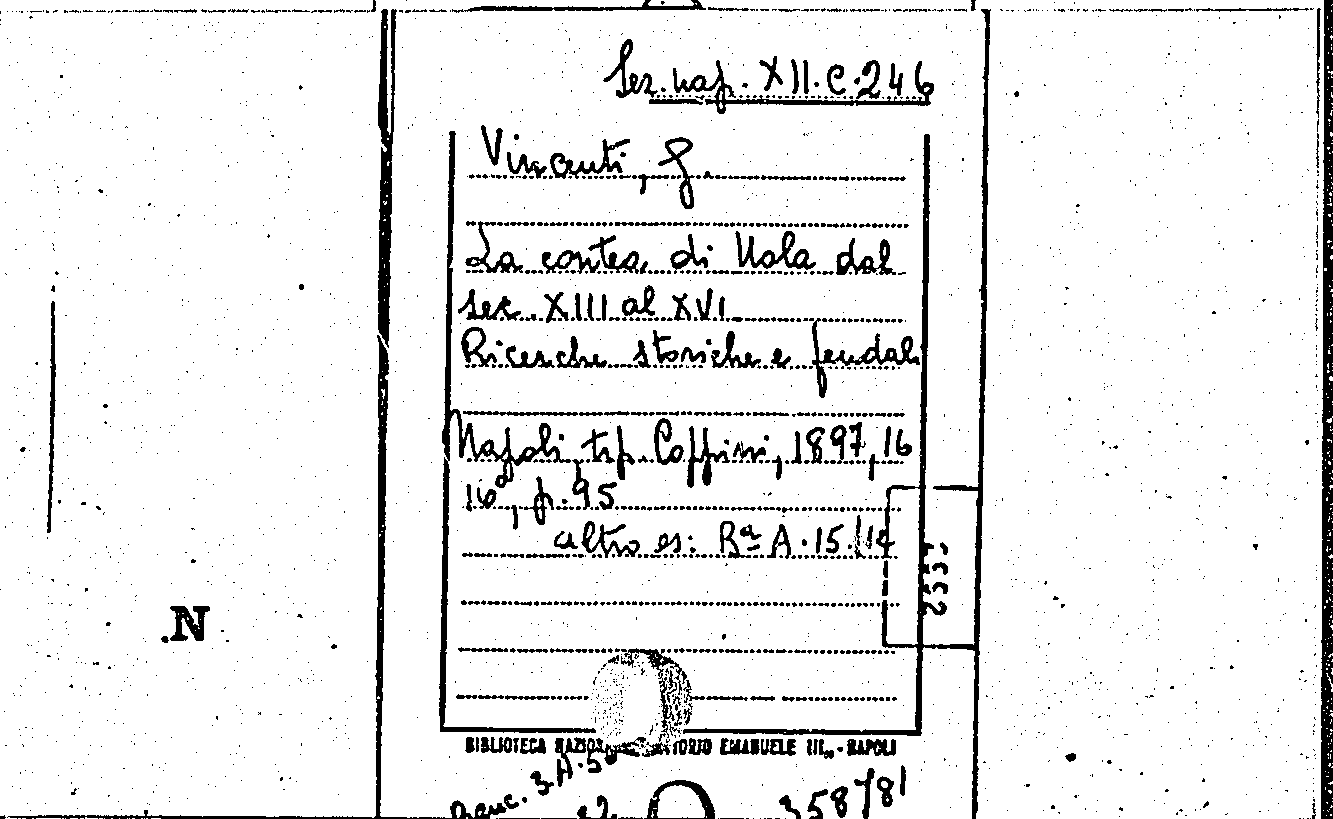 Sez. nap. XII. C. 246
Vincenti, G.
La contea di Nola dal
sec. XIII al XVI.
Ricerche storiche e feudali
Napoli, tip. Coppini, 1897, 16
16°, p. 95
altro es: Rª A. 15.
2555
.N
BIBLIOTECA NAZIONALE VITTORIO EMANUELE III,, - NAPOLI
Branc. 3. A. 5
358781